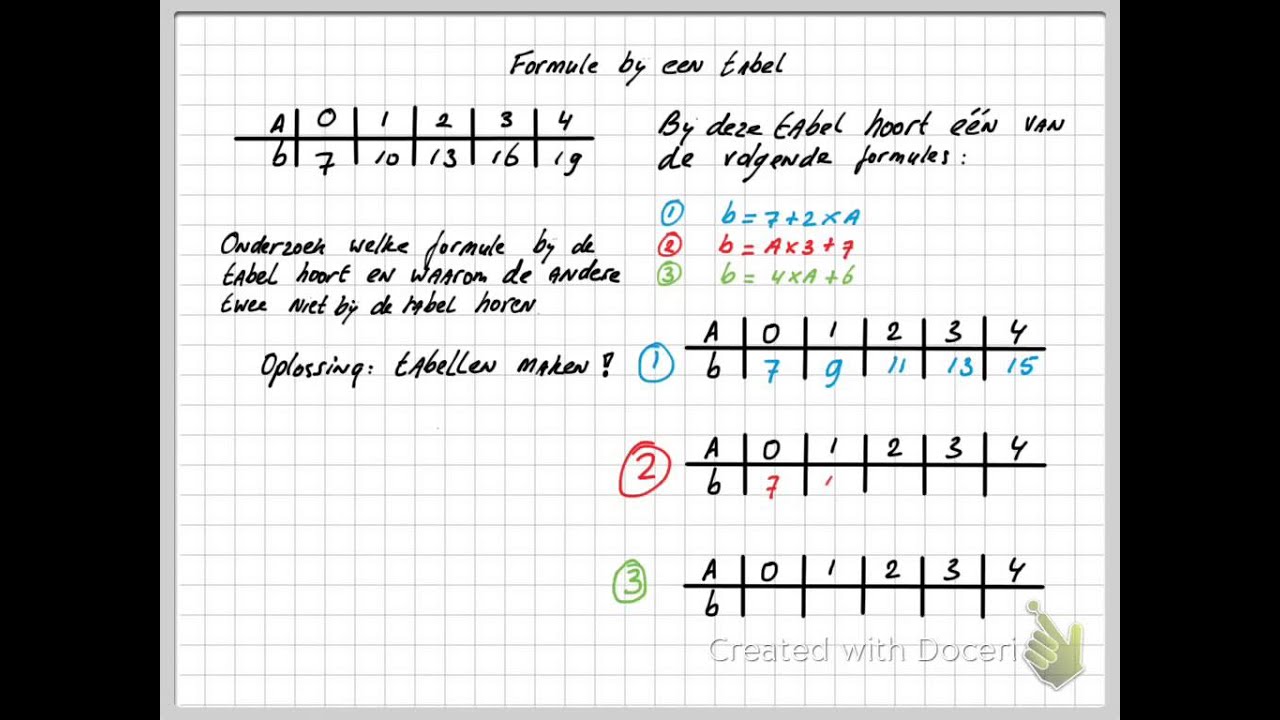 Formule bij een tabel
A 0 1 2 3 4
b 7 10 13 16 19
Bij deze tabel hoort één van
de volgende formules:
① b = 7 + 2 × A
② b = A × 3 + 7
③ b = 4 × A + 6
Onderzoek welke formule bij de
tabel hoort en waarom de andere
twee niet bij de tabel horen
Oplossing: tabellen maken!
① A 0 1 2 3 4
b 7 9 11 13 15
② A 0 1 2 3 4
b 7
③ A 0 1 2 3 4
b
Created with Doceri